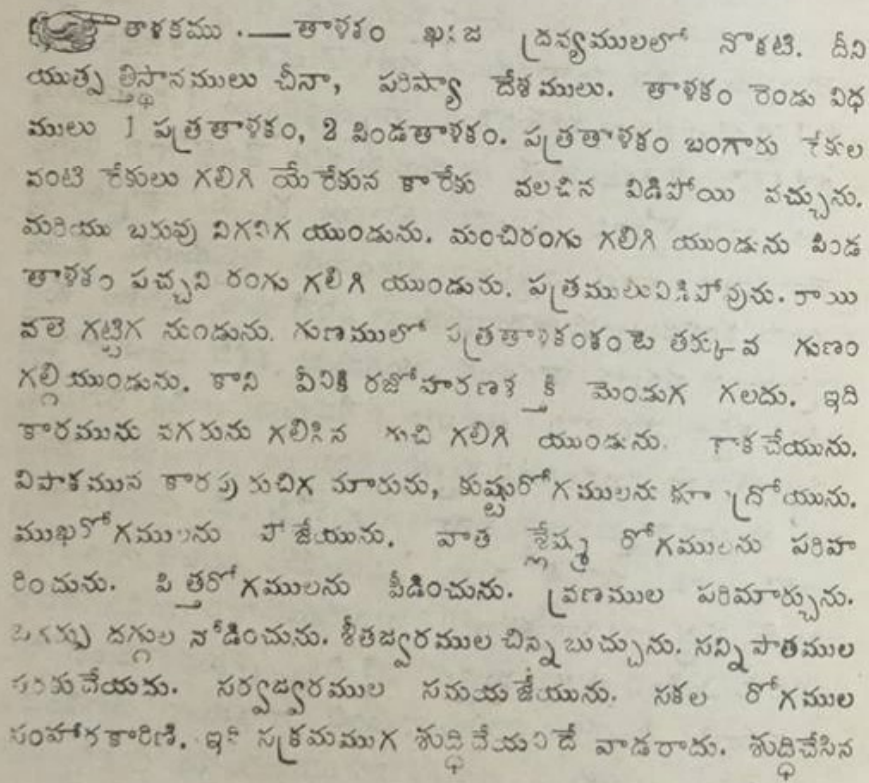 తాళకము .— తాళకం ఖనిజ ద్రవ్యములలో నొకటి. దీని
యుత్పత్తిస్థానములు చీనా, పరిష్యా దేశములు. తాళకం రెండు విధ
ములు 1 పత్రతాళకం, 2 పిండతాళకం. పత్రతాళకం బంగారు రేకుల
వంటి రేకులు గలిగి యే రేకున కారేకు వలచిన విడిపోయి వచ్చును.
మరియు బరువు నిగనిగ యుండును. మంచిరంగు గలిగి యుండును పిండ
తాళకం పచ్చని రంగు గలిగి యుండును. పత్రములువిసిపోవును. రాయి
వలె గట్టిగ నుండును. గుణములో పత్రతాళకంకంటె తక్కువ గుణం
గల్గియుండును. కాని వీనికి రజోహరణశక్తి మెండుగ గలదు. ఇది
కారమును వగరును గలిసిన రుచి గలిగి యుండును. కాక చేయును.
విపాకమున కారపు రుచిగ మారును, కుష్టురోగములను ద్రోయును.
ముఖరోగములను పోజేయును. వాత శ్లేష్మ రోగములను పరిహ
రించును. పిత్తరోగములను పీడించును. వ్రణముల పరిమార్చును.
దగ్గుల నోడించును. శీతజ్వరముల చిన్నబుచ్చును. సన్నిపాతముల
సర్వజ్వరముల సమయజేయును. సకల రోగముల
సంహారకారిణి. ఇది సక్రమముగ శుద్ధిచేయనిదే వాడరాదు. శుద్ధిచేసిన